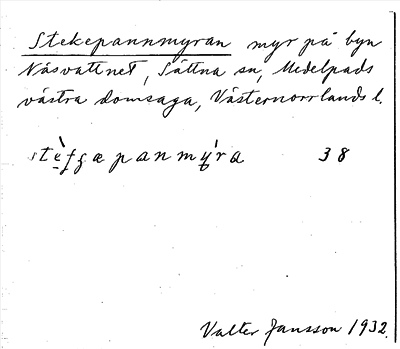 Stekepannmyran myr på byn
Näsvattnet, Sättna sn, Medelpads
västra domsaga, Västernorrlands l.
38
Valter Jansson 1932.